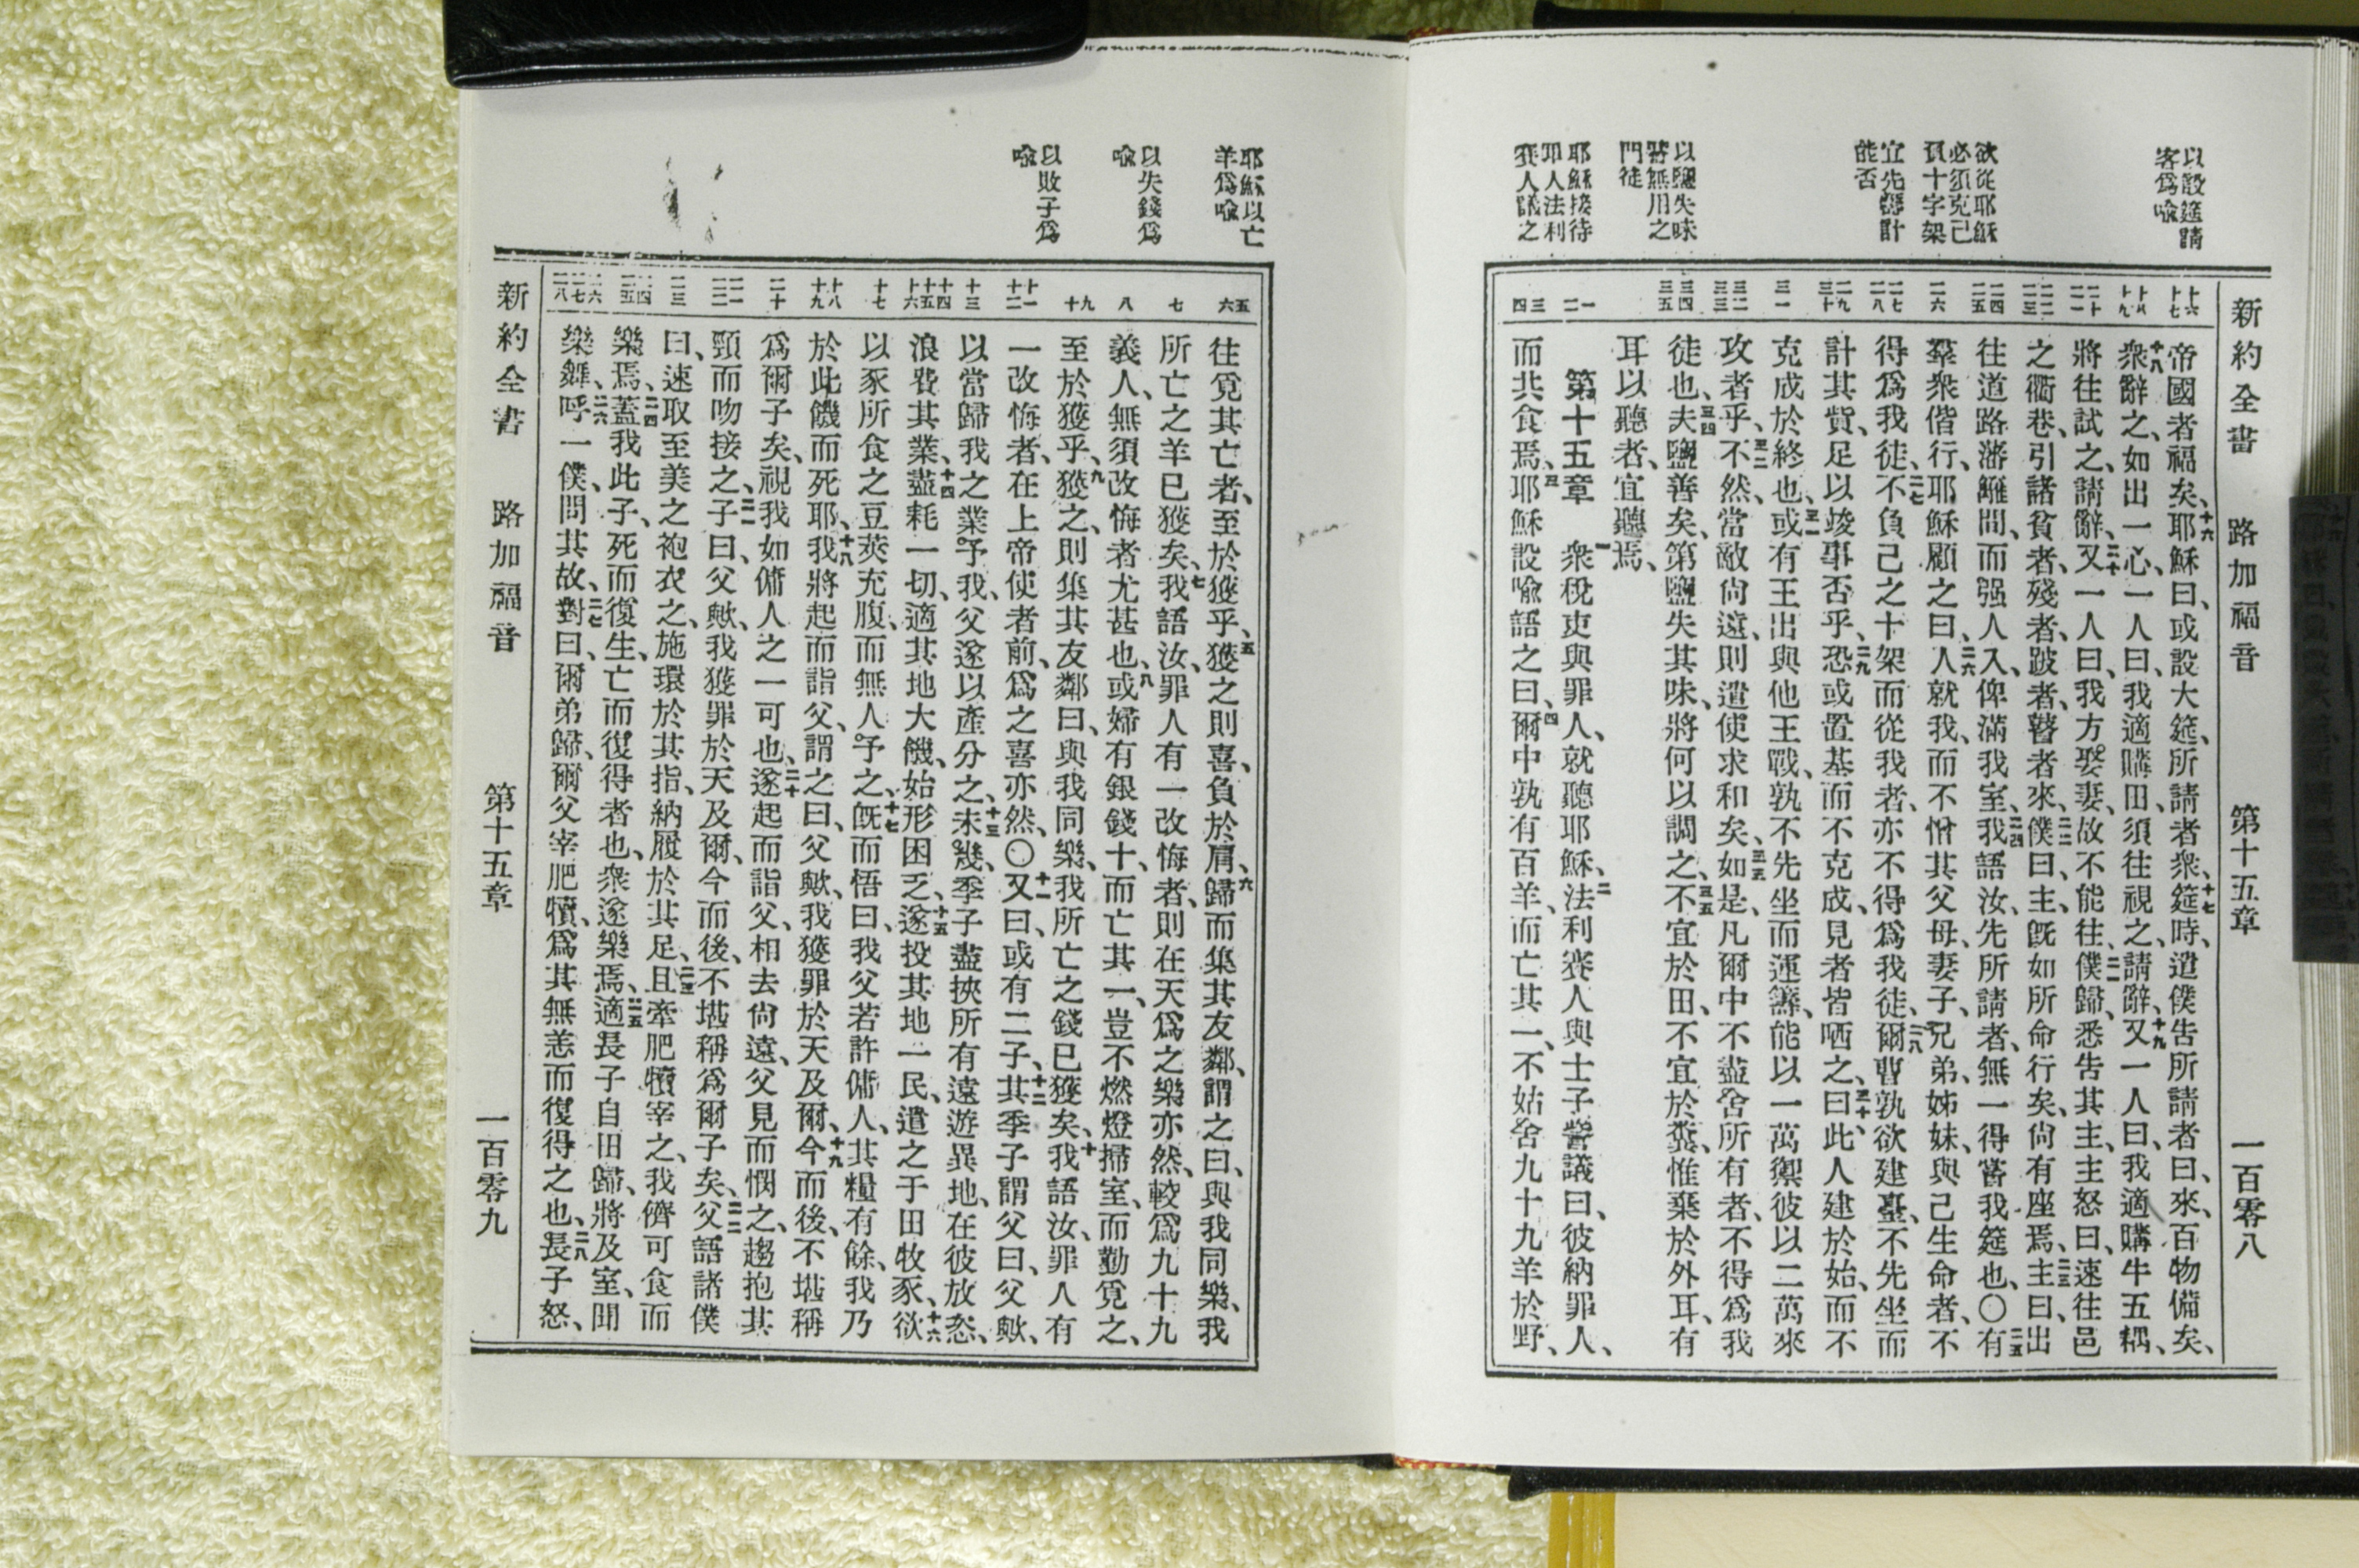 新約全書 路加福音 第十五章 一百零八
以設筵請
客爲喻
欲從耶穌
必須克己
負十字架
宜先籌計
能否
以鹽失味
譬無用之
門徒
耶穌接待
人法利
賽人議之
十六 十七
帝國者福矣、十六耶穌曰、或設大筵、所請者衆、十七筵時、遣僕告所請者曰、來、百物備矣、
十八 十九
十八衆辭之、如出一心、一人曰、我適購田、須往視之、請辭、十九又一人曰、我適購牛五耦、
二十 二一
將往試之、請辭、二十又一人曰、我方娶妻、故不能往、二一僕歸、悉告其主、主怒曰、速往邑
二二 二三
之衢巷、引諸貧者、殘者、跛者、瞽者來、二二僕曰、主、旣如所命行矣、尙有座焉、二三主曰、出
二四 二五
往道路藩籬間、而强人入、俾滿我室、二四我語汝、先所請者、無一得嘗我筵也、〇二五有
二六
羣衆偕行、耶穌顧之曰、二六人就我、而不憎其父母、妻子、兄弟、姊妹、與己生命者、不
二七 二八
得爲我徒、二七不負己之十架而從我者、亦不得爲我徒、二八爾曹孰欲建臺、不先坐而
二九 三十
計其貲、足以竣事否乎、二九恐或置基而不克成、見者皆哂之、三十曰、此人建於始、而不
三一
克成於終也、三一或有王出與他王戰、孰不先坐而運籌、能以一萬禦彼以二萬來
三二 三三
攻者乎、三二不然、當敵尙遠、則遣使求和矣、三三如是、凡爾中不盡舍所有者、不得爲我
三四 三五
徒也、三四夫鹽善矣、第鹽失其味、將何以調之、三五不宜於田、不宜於糞、惟棄於外耳、有
耳以聽者、宜聽焉、
一 二
第十五章 一衆稅吏與罪人、就聽耶穌、二法利賽人與士子訾議曰、彼納罪人、
三 四
而共食焉、三耶穌設喻語之曰、四爾中孰有百羊、而亡其一、不姑舍九十九羊於野、
耶穌以亡
羊爲喻
以失錢爲
喻
以敗子爲
喻
五 六
往覓其亡者、至於獲乎、五獲之則喜、負於肩、六歸而集其友鄰、謂之曰、與我同樂、我
七
所亡之羊已獲矣、七我語汝、罪人有一改悔者、則在天爲之樂亦然、較爲九十九
八
義人、無須改悔者尤甚也、八或婦有銀錢十、而亡其一、豈不燃燈掃室、而勤覓之、
九 十
至於獲乎、九獲之、則集其友鄰曰、與我同樂、我所亡之錢已獲矣、十我語汝、罪人有
十一 十二
一改悔者、在上帝使者前、爲之喜亦然、〇十一又曰、或有二子、十二其季子謂父曰、父歟、
十三
以當歸我之業予我、父遂以產分之、十三未幾、季子盡挾所有、遠遊異地、在彼放恣、
十四 十五 十六
浪費其業、十四盡耗一切、適其地大饑、始形困乏、十五遂投其地一民、遣之于田牧豕、十六欲
十七
以豕所食之豆莢充腹、而無人予之、十七旣而悟曰、我父若許傭人、其糧有餘、我乃
十八 十九
於此饑而死耶、十八我將起而詣父、謂之曰、父歟、我獲罪於天及爾、十九今而後、不堪稱
二十
爲爾子矣、視我如傭人之一可也、二十遂起而詣父、相去尙遠、父見而憫之、趨抱其
二一 二二
頸而吻接之、二一子曰、父歟、我獲罪於天及爾、今而後、不堪稱爲爾子矣、二二父語諸僕
二三
曰、速取至美之袍衣之、施環於其指、納履於其足、二三且牽肥犢宰之、我儕可食而
二四 二五
樂焉、二四蓋我此子、死而復生、亡而復得者也、衆遂樂焉、二五適長子自田歸、將及室、聞
二六 二七 二八
樂舞、二六呼一僕、問其故、二七對曰、爾弟歸、爾父宰肥犢、爲其無恙而復得之也、二八長子怒、
新約全書 路加福音 第十五章 一百零九